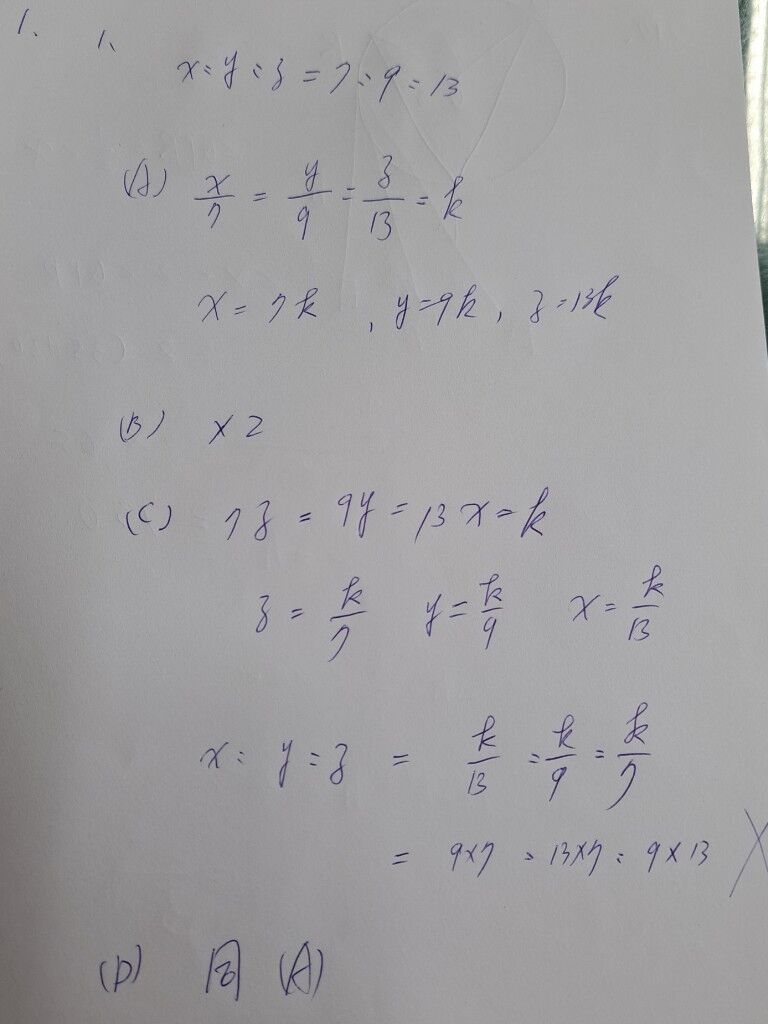 1. 1.
x : y : z = 7 : 9 : 13
(A) x/7 = y/9 = z/13 = k
x = 7k , y = 9k , z = 13k
(B) × 2
(C) 7z = 9y = 13x = k
z = k/7 y = k/9 x = k/13
x : y : z = k/13 : k/9 : k/7
= 9×7 : 13×7 : 9×13 X
(D) 同 (A)